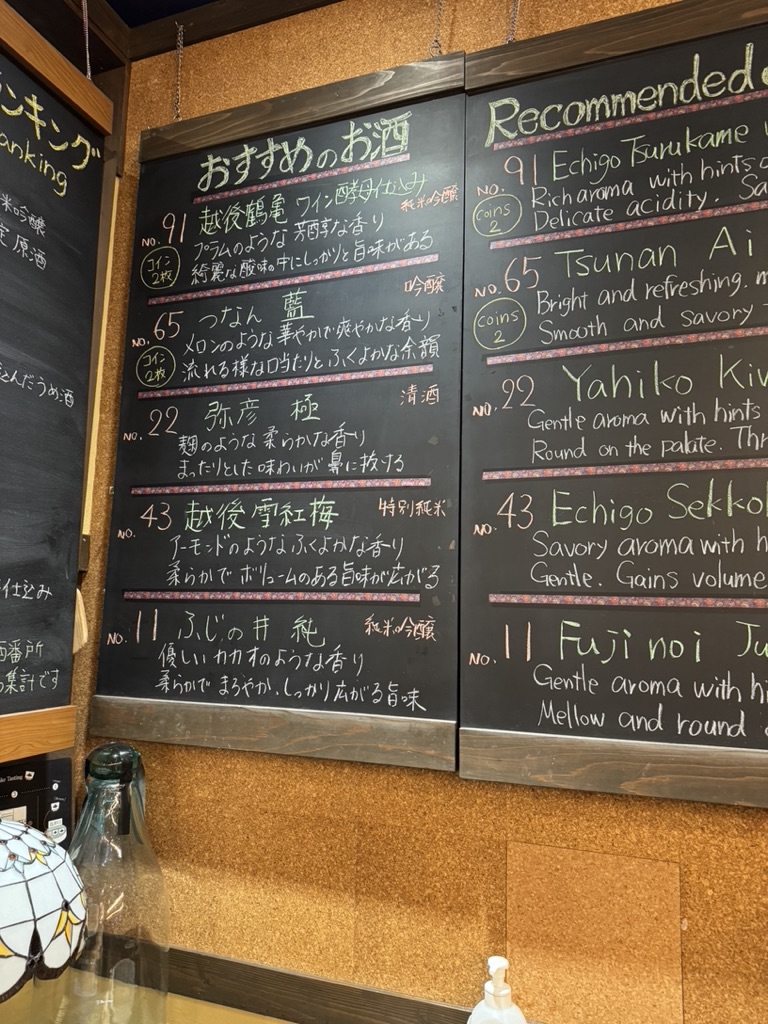 ンキング
anking
米吟醸
原酒
込んだうめ酒
仕込み
番所
集計です
おすすめのお酒
NO. 91 越後鶴亀 ワイン酵母仕込み 純米吟醸
コイン2枚
プラムのような 芳醇な香り
綺麗な酸味の中にしっかりと旨味がある
吟醸
NO. 65 つなん 藍
コイン2枚
メロンのような 華やかで爽やかな香り
流れる様な口当たりと ふくよかな余韻
清酒
NO. 22 弥彦 極
麹のような 柔らかな香り
まったりとした味わいが 鼻に抜ける
NO. 43 越後雪紅梅 特別純米
アーモンドのような ふくよかな香り
柔らかで ボリュームのある旨味が広がる
NO. 11 ふじの井 純 純米吟醸
優しいカカオのような香り
柔らかで まろやか、しっかり広がる旨味
Recommended
NO. 91 Echigo Tsurukame
coins 2
Rich aroma with hints
Delicate acidity.
NO. 65 Tsunan Ai
coins 2
Bright and refreshing.
Smooth and savory
NO. 22 Yahiko
Gentle aroma with hints
Round on the palate.
NO. 43 Echigo
Savory aroma with
Gentle. Gains volume
NO. 11 Fuji noi
Gentle aroma with
Mellow and round